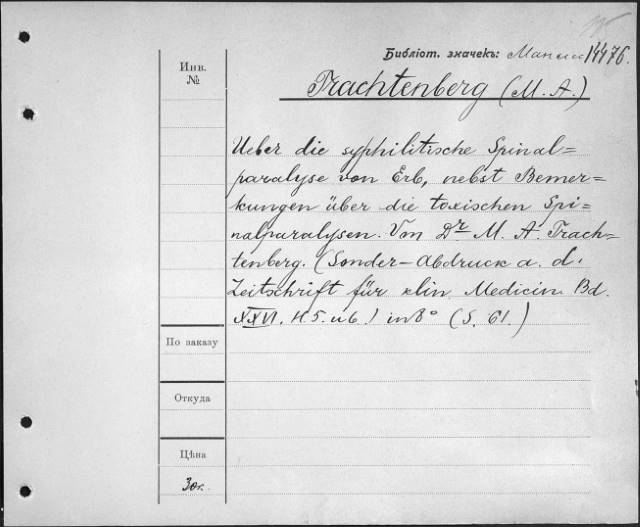 Библіот. значекъ: 14476.
Инв.
№
Trachtenberg (M. A.)
Ueber die syphilitische Spinal=
paralyse von Erb, nebst Bemer=
kungen über die toxischen Spi=
nalparalysen. Von Dr M. A. Trach=
tenberg. (Sonder-Abdruck a. d.
Zeitschrift für klin. Medicin Bd.
XXVI. H. 5. u 6.) in 8° (S. 61.)
По заказу
Откуда
Цѣна
30к.